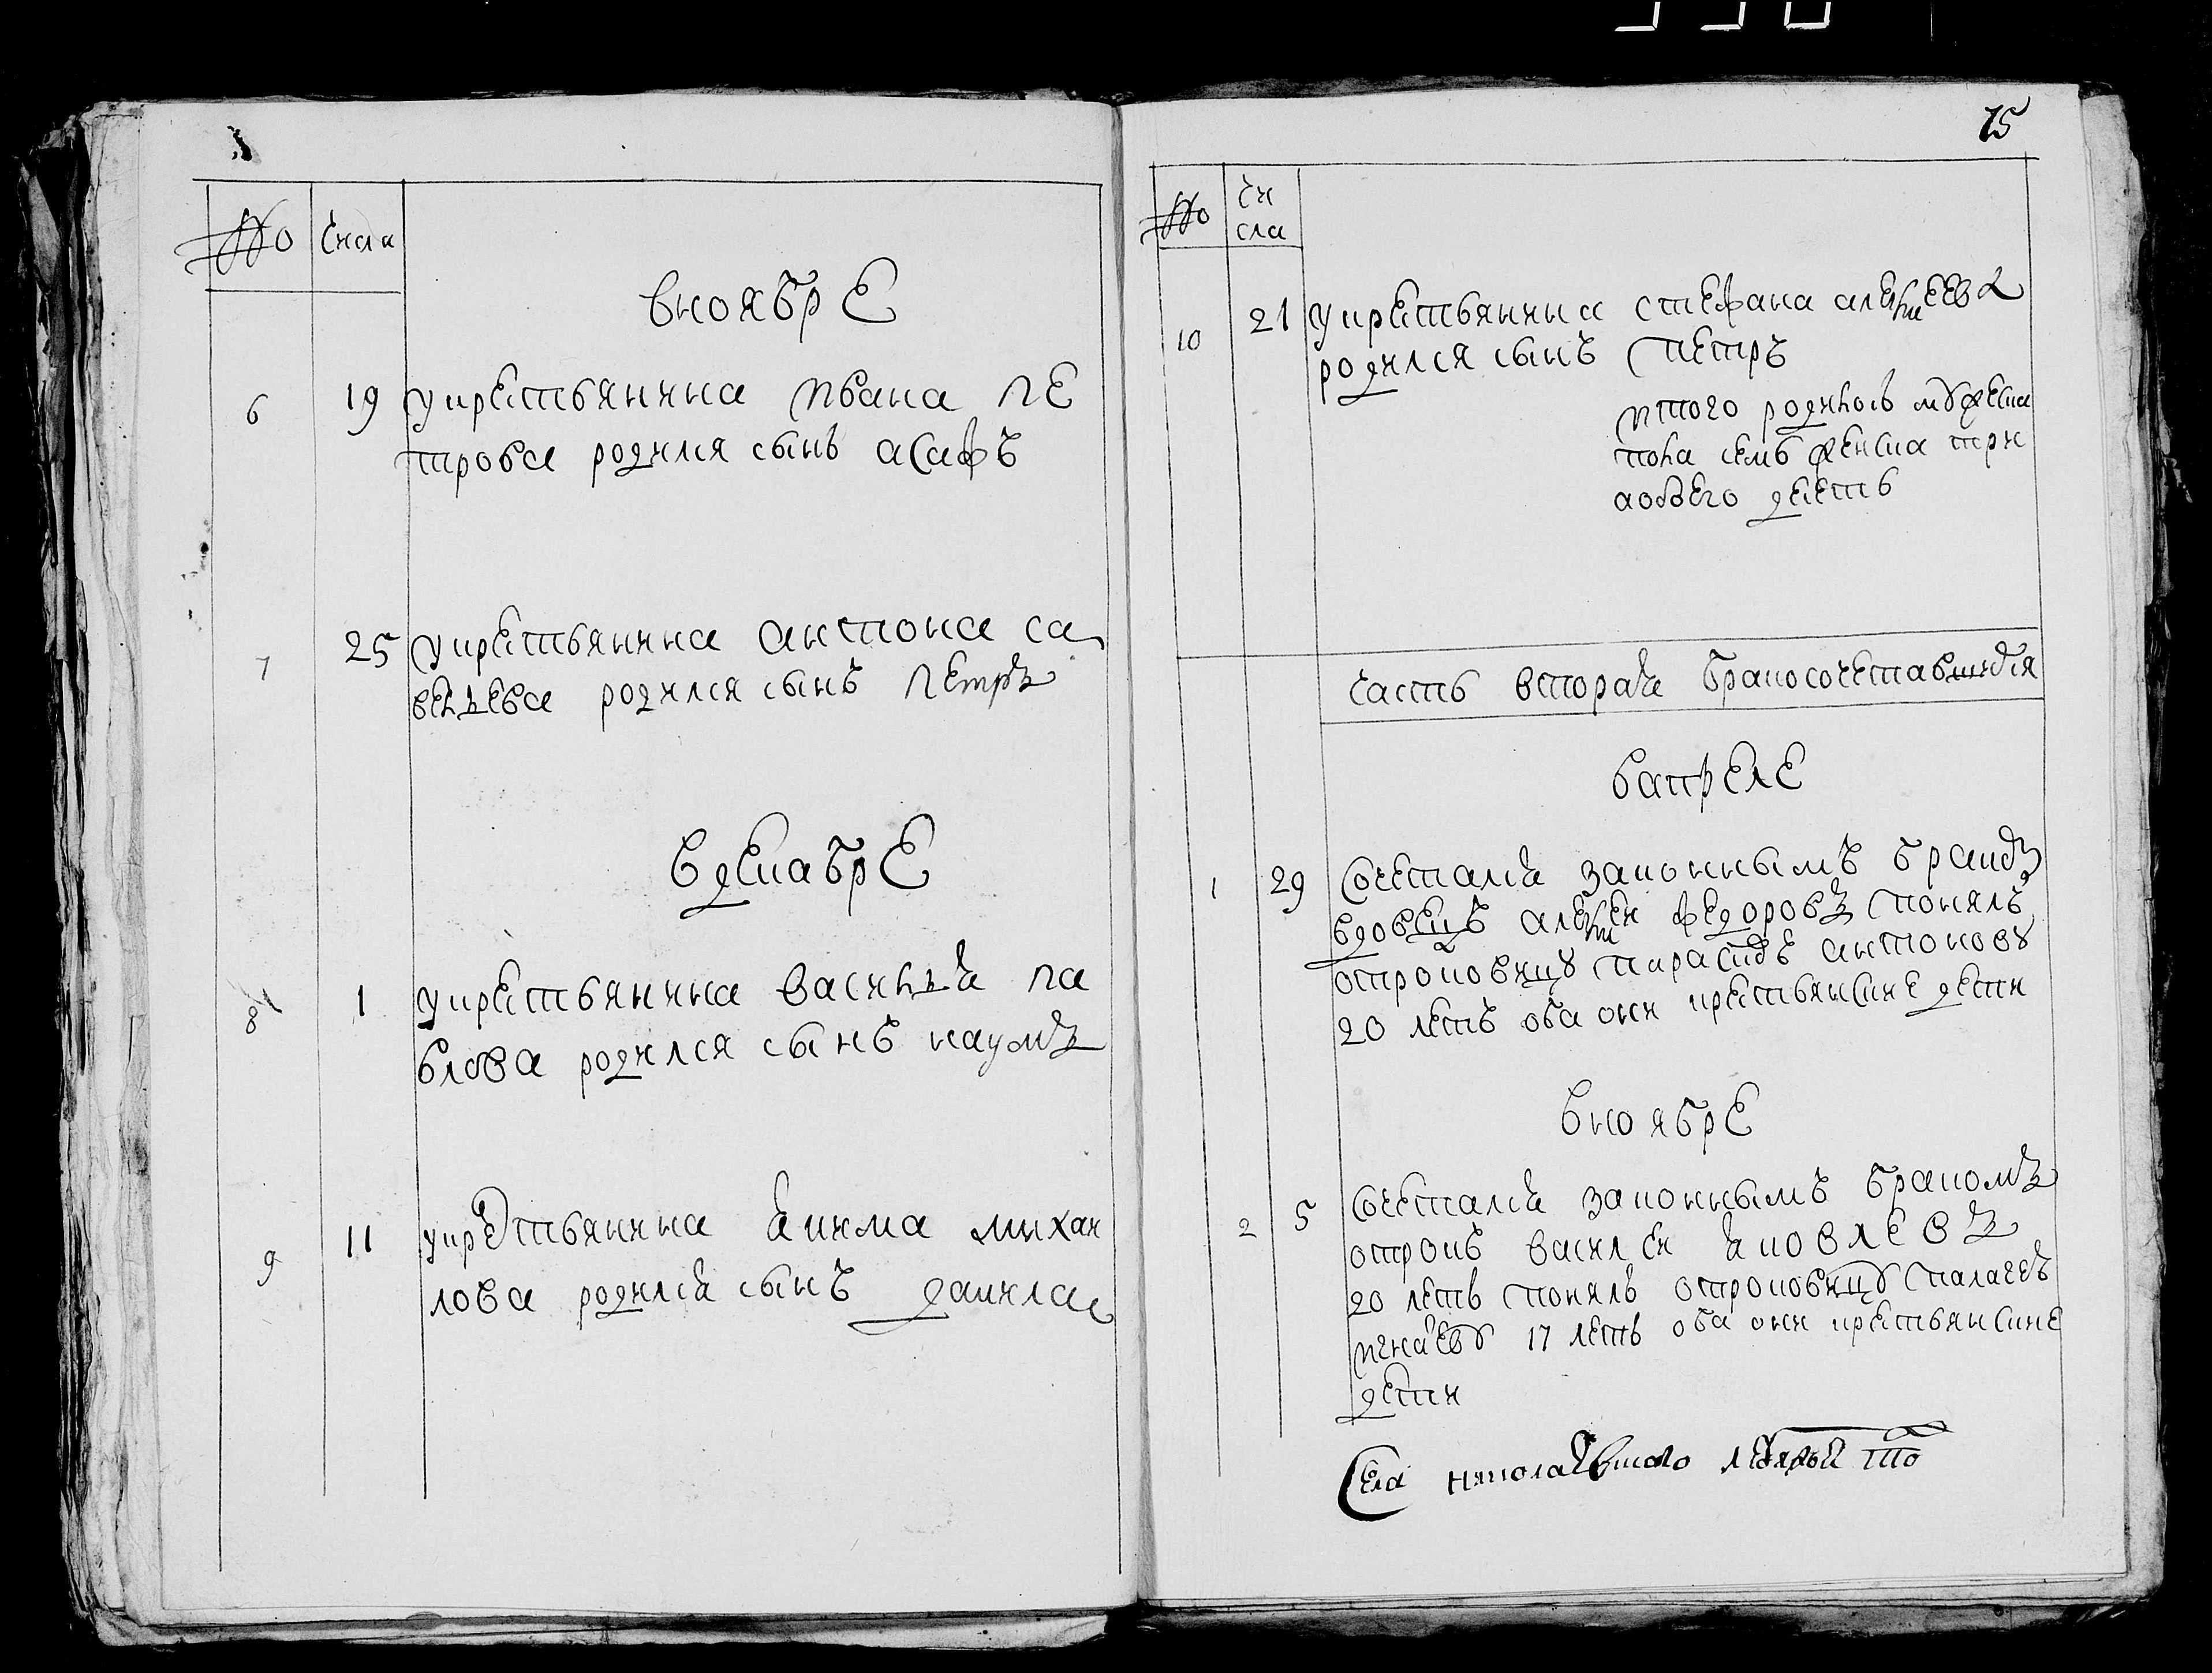 № числа
вноябрЕ
6 19 укрестьянина ивана пе
трова родился сынъ асафъ
7 25 укрестьянина антона са
вельева родился сынъ петръ
вдекабрЕ
8 1 укрестьянина василья па
влова родился сынъ наумъ
9 11 укрестьянина якима михаи
лова родился сынъ данила
75
№ чи
сла
10 21 укрестьянина стефана алексеева
родился сынъ петръ
итого родилось мужеска
пола семь женска три
а обоего десеть
часть вторая бракосочетавшихся
вапреле
1 29 сочетался законнымъ бракомъ
вдовецъ алексеи федоровъ понялъ
отроковицу парасковъ антонову
20 летъ оба они крестьянские дети
вноябре
2 5 сочетался законнымъ бракомъ
отрокъ василеи яковлевъ
20 летъ понялъ отроковицу пелагею
17 летъ оба они крестьянские
дети
Села николаевского